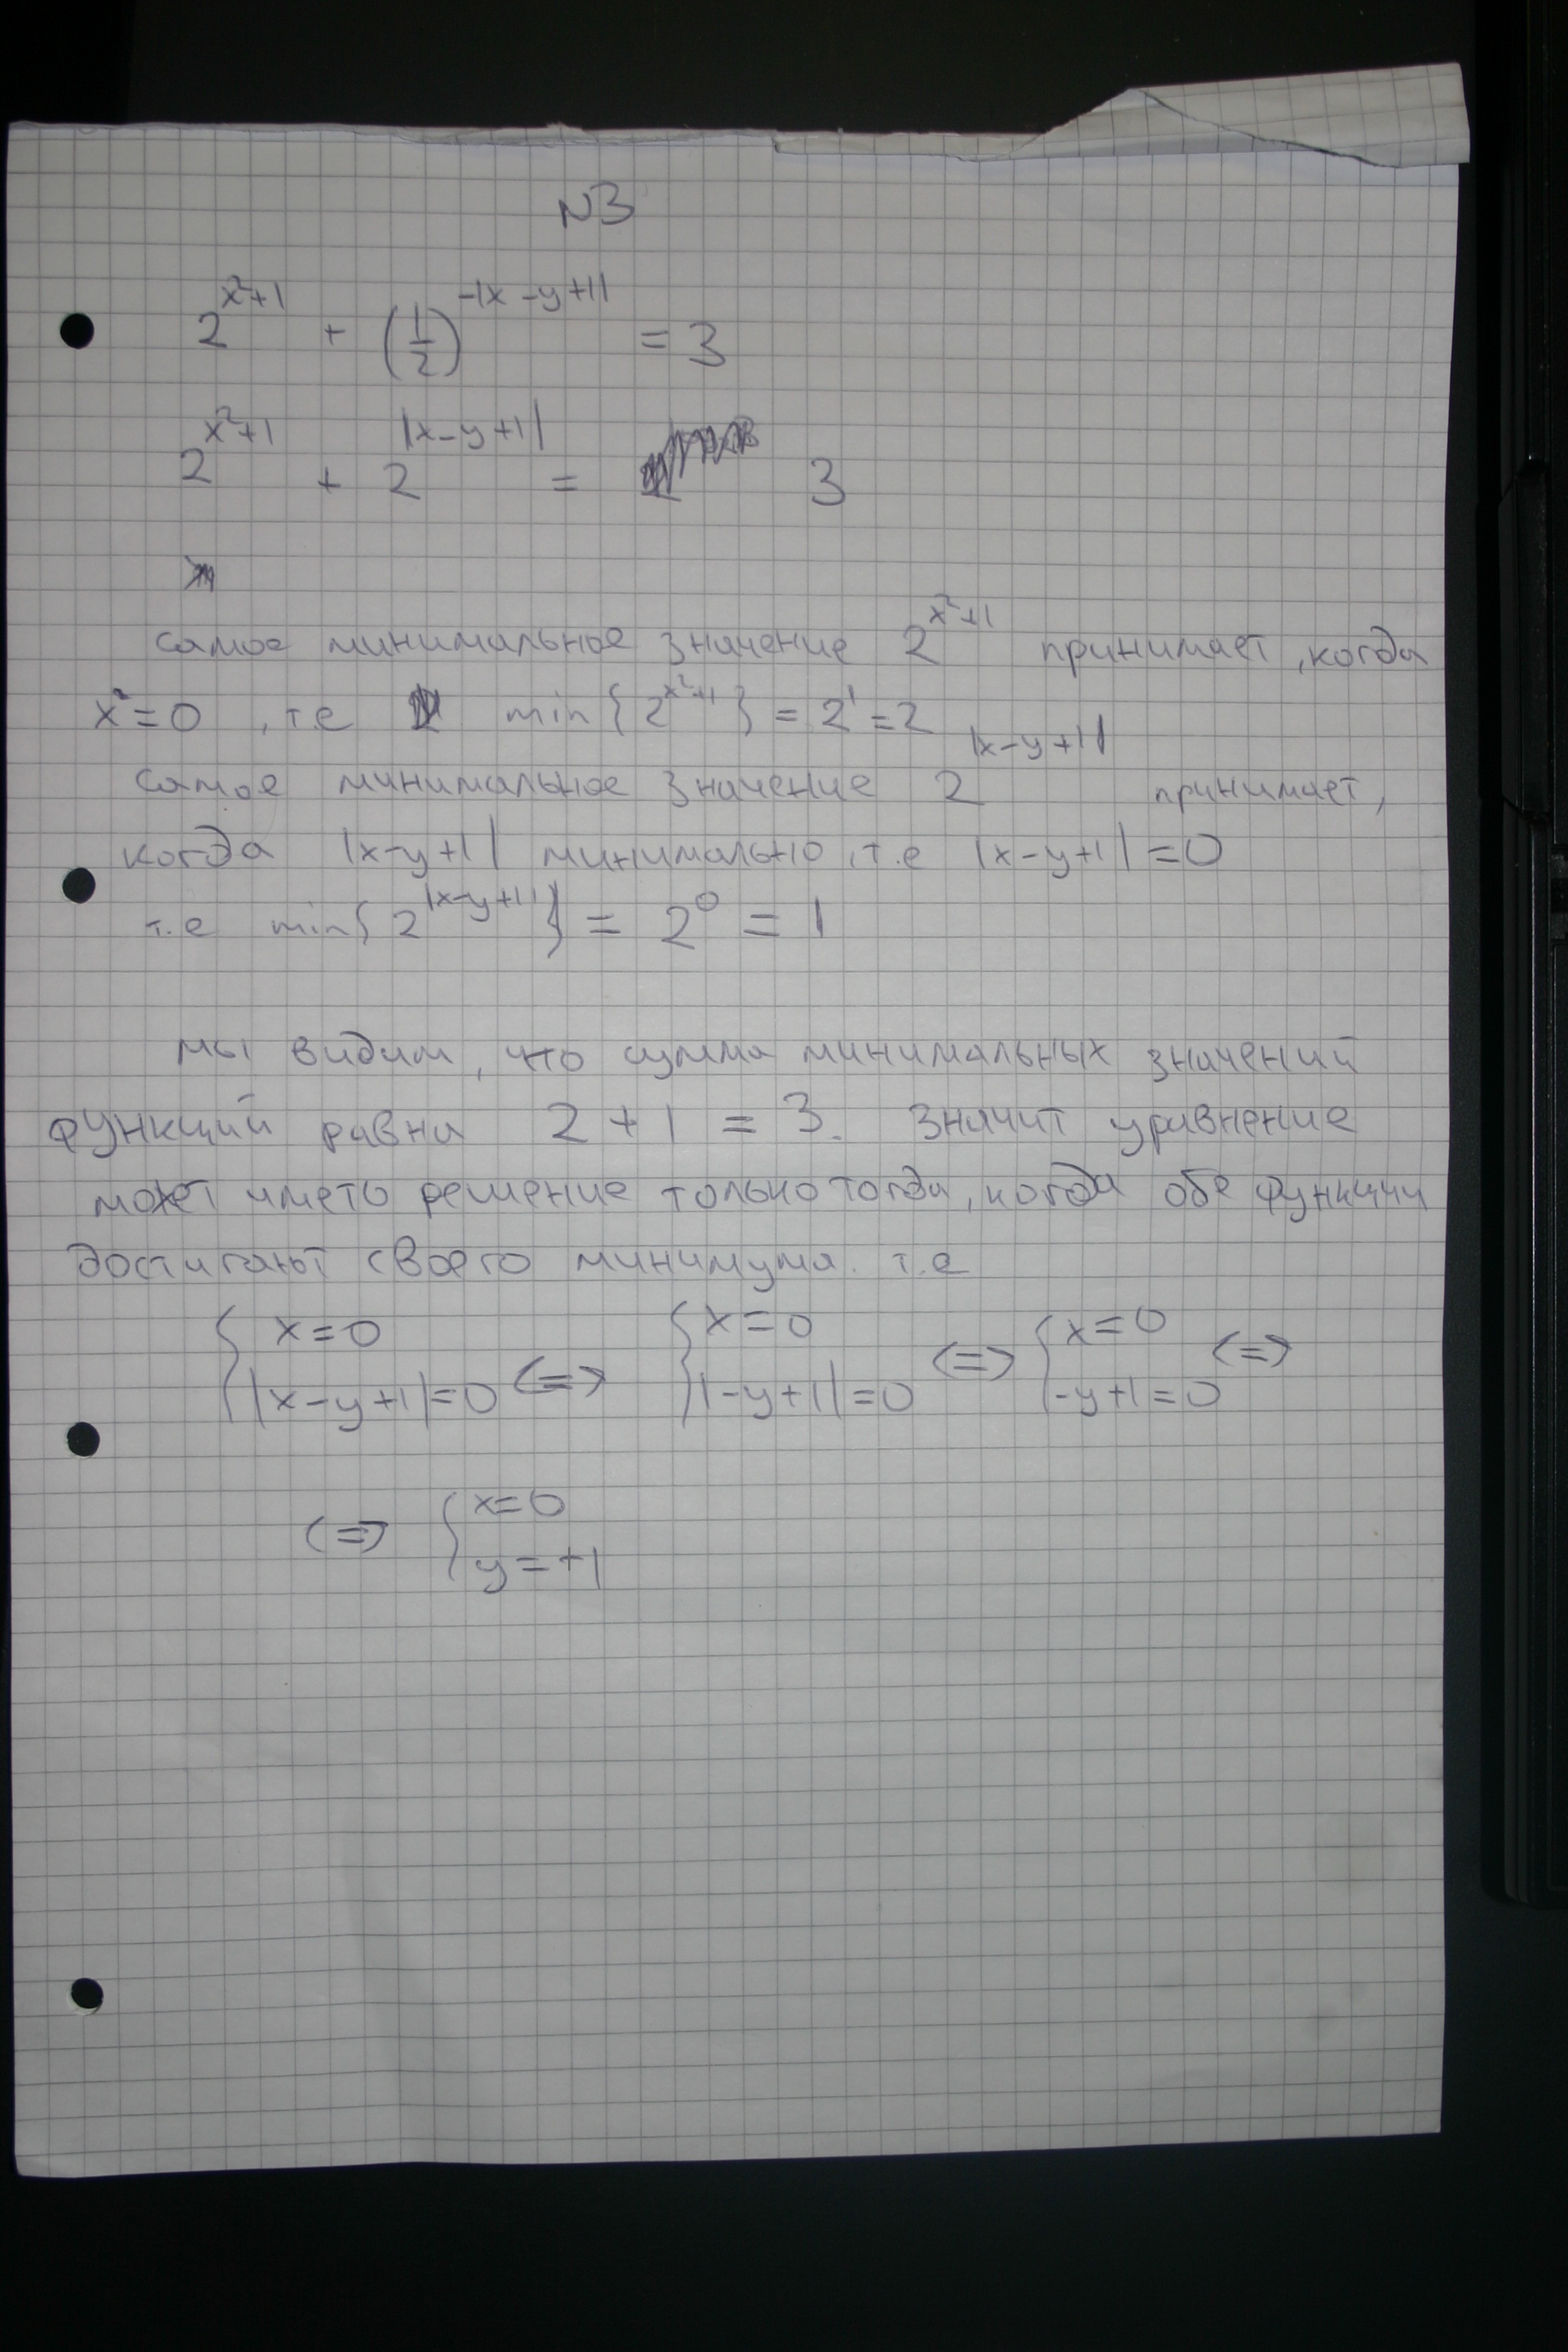 N3
2^{x²+1} + (1/2)^{-|x-y+1|} = 3
2^{x²+1} + 2^{|x-y+1|} = 3
самое минимальное значение 2^{x²+1} принимает, когда
x²=0, т.е min{2^{x²+1}} = 2¹ = 2
самое минимальное значение 2^{|x-y+1|} принимает,
когда |x-y+1| минимально, т.е |x-y+1| = 0
т.е min{2^{|x-y+1|}} = 2⁰ = 1
мы видим, что сумма минимальных значений
функций равна 2 + 1 = 3. Значит уравнение
может иметь решение только тогда, когда обе функции
достигают своего минимума. т.е
{ x=0 |x-y+1|=0 (=> { x=0 |-y+1|=0 (=> { x=0 -y+1=0 (=>
(=> { x=0 y=+1